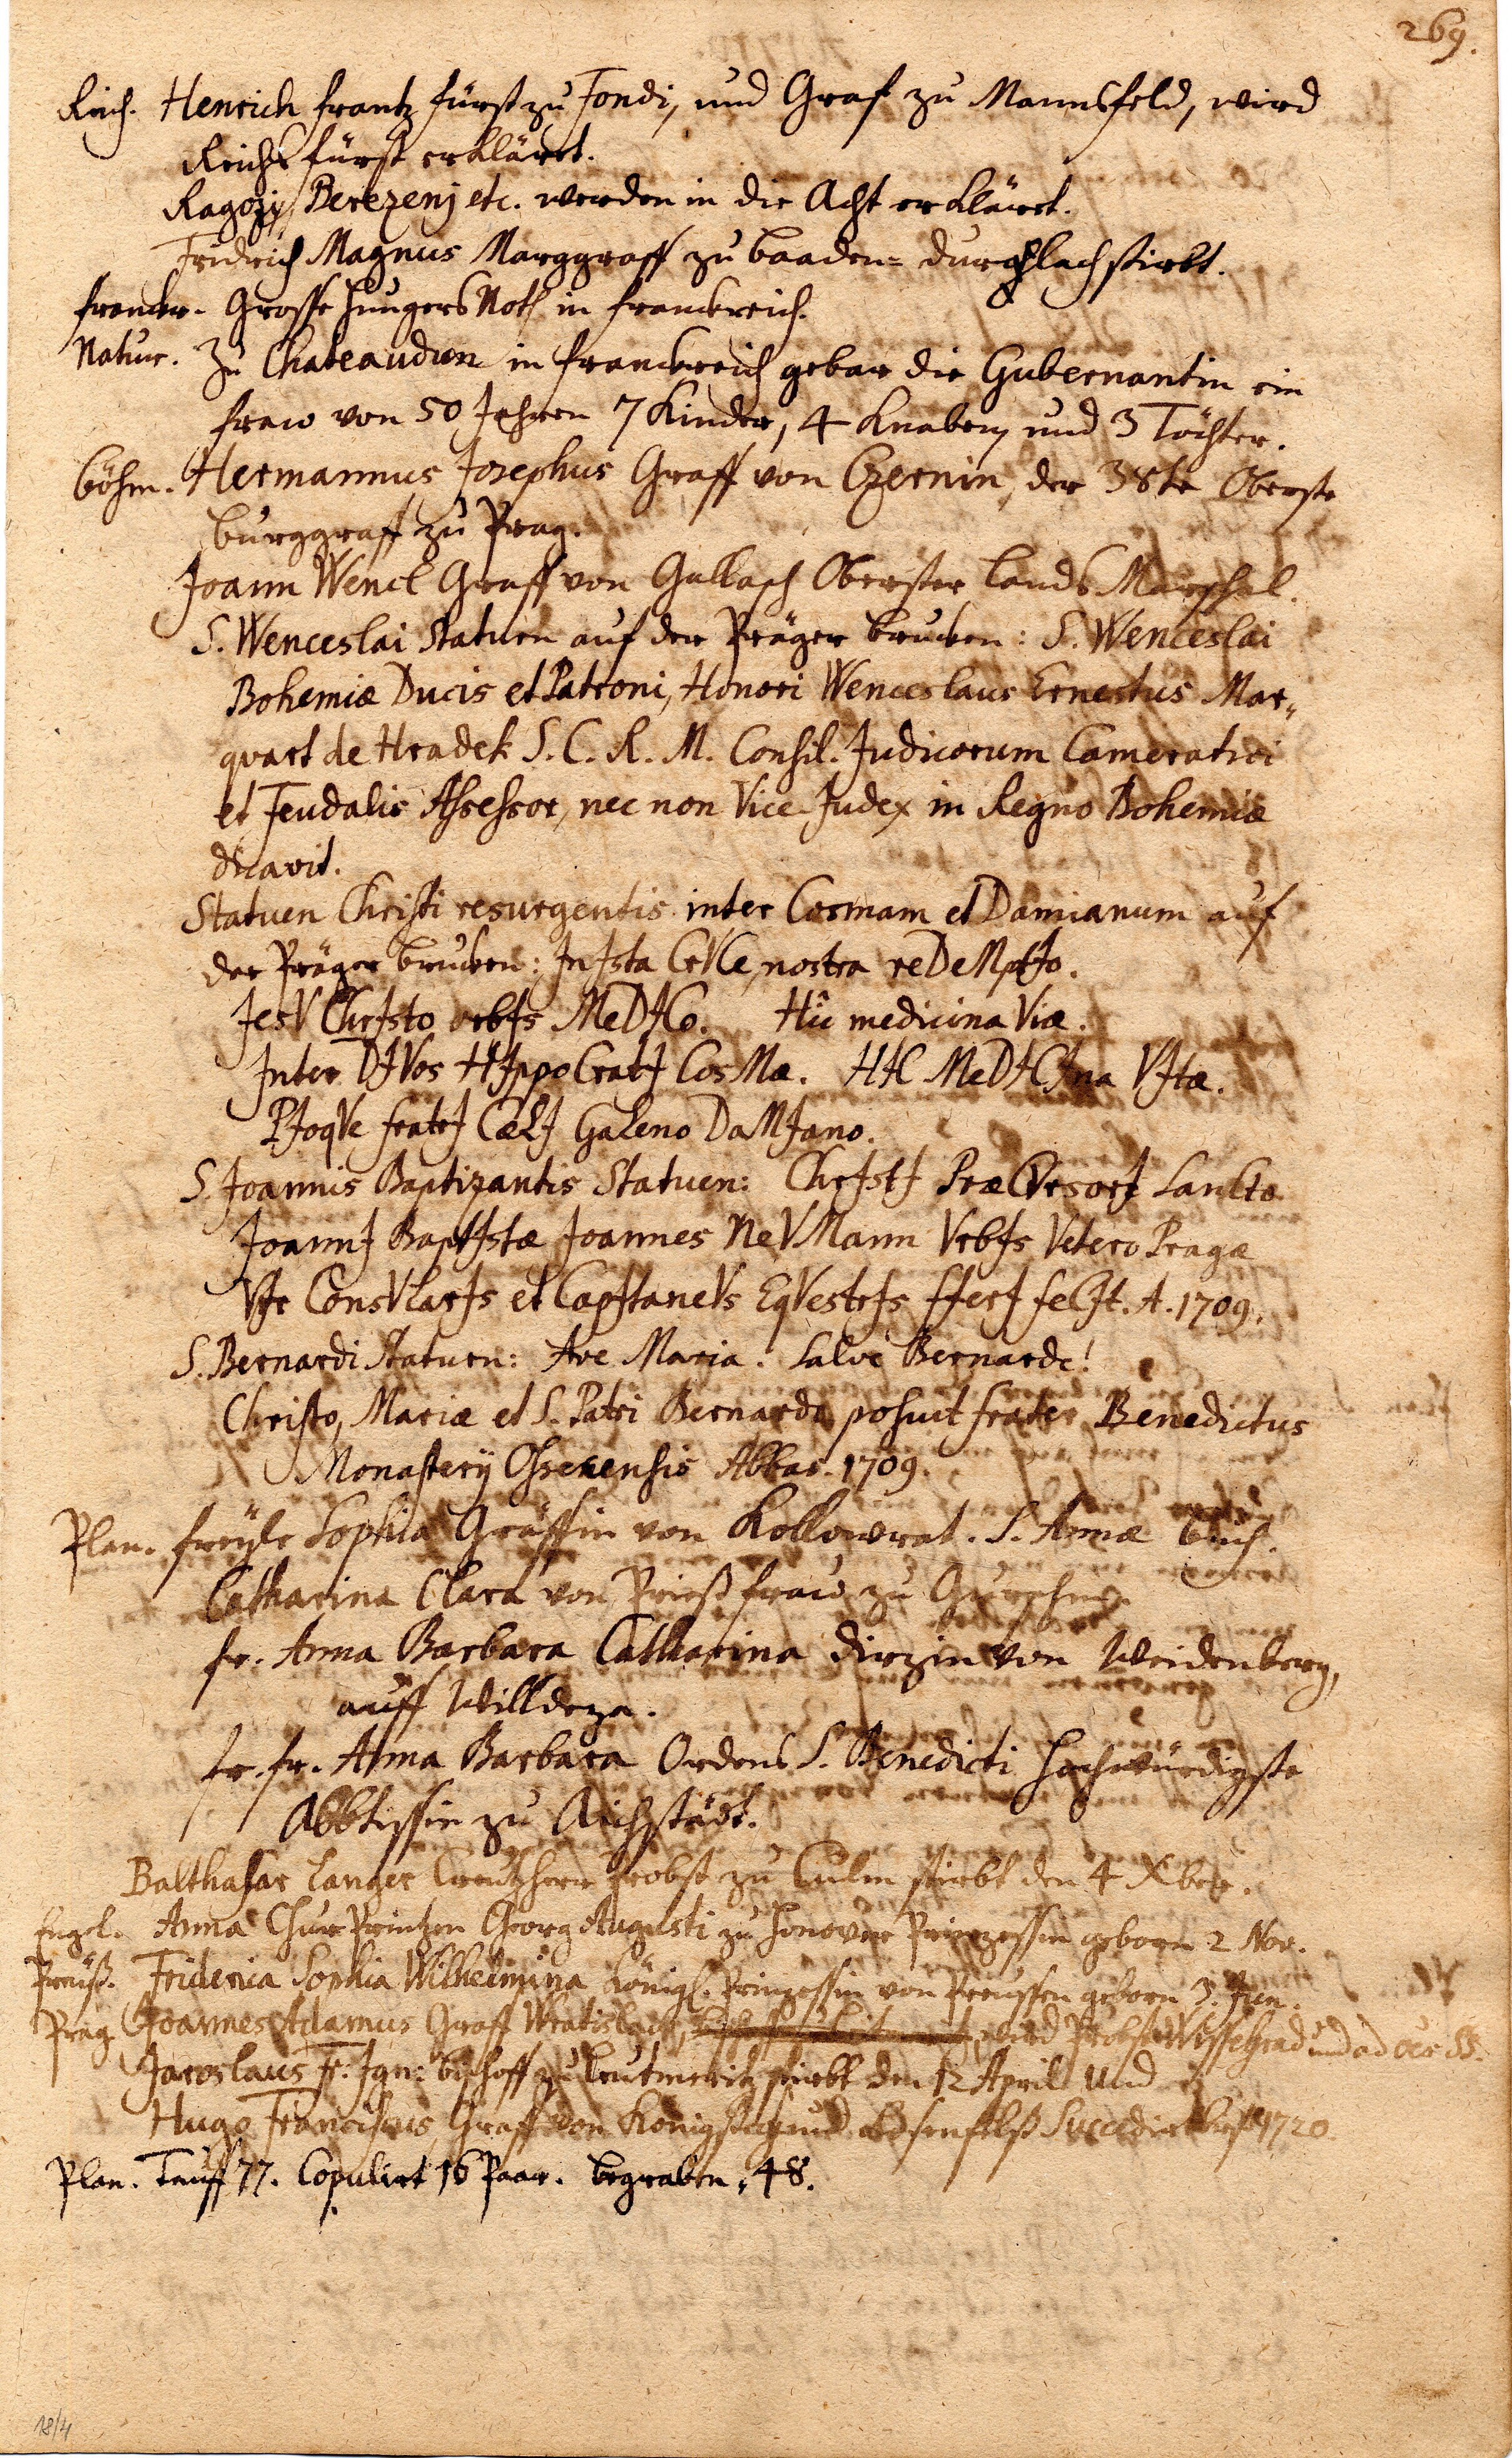 269.
Reich. Henrich Frantz Fürst zu Fondi, und Graf zu Mannsfeld, wird
Reichs Fürst erkläret.
Ragozy, Berezenj etc. werden in die Acht erkläret.
Fridrich Magnus Marggraff zu Baaden=Durchlach stirbt.
Franckr. Grosse Hungers Noth in Franckreich.
Natur. Zu Chateaudun in Franckreich gebar die Gubernantin ein
Fraw von 50 Jahren 7 Kinder, 4 Knaben, und 3 Töchter.
Böhm. Hermannus Josephus Graff von Czernin, der 38te Oberste
Burggraff zu Prag.
Joann Wencl Graff von Gallasch Obrister Lands Marschal.
S. Wenceslai Statuen auf der Präger Brucken: S. Wenceslai
Bohemiæ Ducis et Patroni, Honori Wenceslaus Ernestus Mar„
quart de Hradek S. C. R. M. Consil. Judicorum Cameratici
et Feudalis Assessor, nec non Vice-Judex in Regno Bohemiæ
dicavit.
Statuen Christi resurgentis inter Cosmam et Damianum auf
der Präger Brucken: InIsta CrVCe, nostra reDeMptIo.
JesV ChrIsto orbIs MeDICo. Hîc medicina Viæ.
Inter DIVos HIppoCratI CosMæ. HIC MeDICIna VItæ.
PIoqVe fratrI CœLI GaLeno DaMIano.
S. Joannis Baptizantis Statuen: ChrIstI PræCVrsorI SanCto
JoannI BaptIstæ Joannes NeVMann VrbIs Vetero Pragæ
VIr ConsVLarIs et CapItaneVs EqVestrIs fIerI feCIt. A. 1709.
S. Bernardi Statuen: Ave Maria. Salve Bernarde!
Christo, Mariæ et S. Patri Bernardo posuit Frater Benedictus
Monasterij Ossecensis Abbas. 1709.
Plan. Freyle Sophia Gräffin von Kollowrat. S. Annæ Buch.
Catharina Clara von Prieß Fraw zu
Fr. Anna Barbara Catharina Dirzin von Weidenberg,
auff Willdeza.
Fr. Fr. Anna Barbara Ordens S. Benedicti Hochwürdigste
Abbtissin zu Aichstädt.
Balthasar Langer Creutzherr Probst zu Culm stirbt den 4 Xber.
Engel. Anna Chur Printzen Georg Augusti zu Honover Prinzessin geborn 2 Nov.
Preuß. Friderica Sophia Wilhelmina Königl. Prinzessin von Preussen geborn 3. Jun.
Prag Joannes Adamus Graff Wratislaw, wird Probst Wissehrad und ad SS.
Jaroslaus Fr: Ign: Bischoff zu Leutmeritz stirbt den 12 April und
Hugo Franciscus Graff von Königsegg und Rosenfelß Succedirt erst 1720.
Plan. Tauff 77. Copulirt 16 Paar. Begraben. 48.
18/4